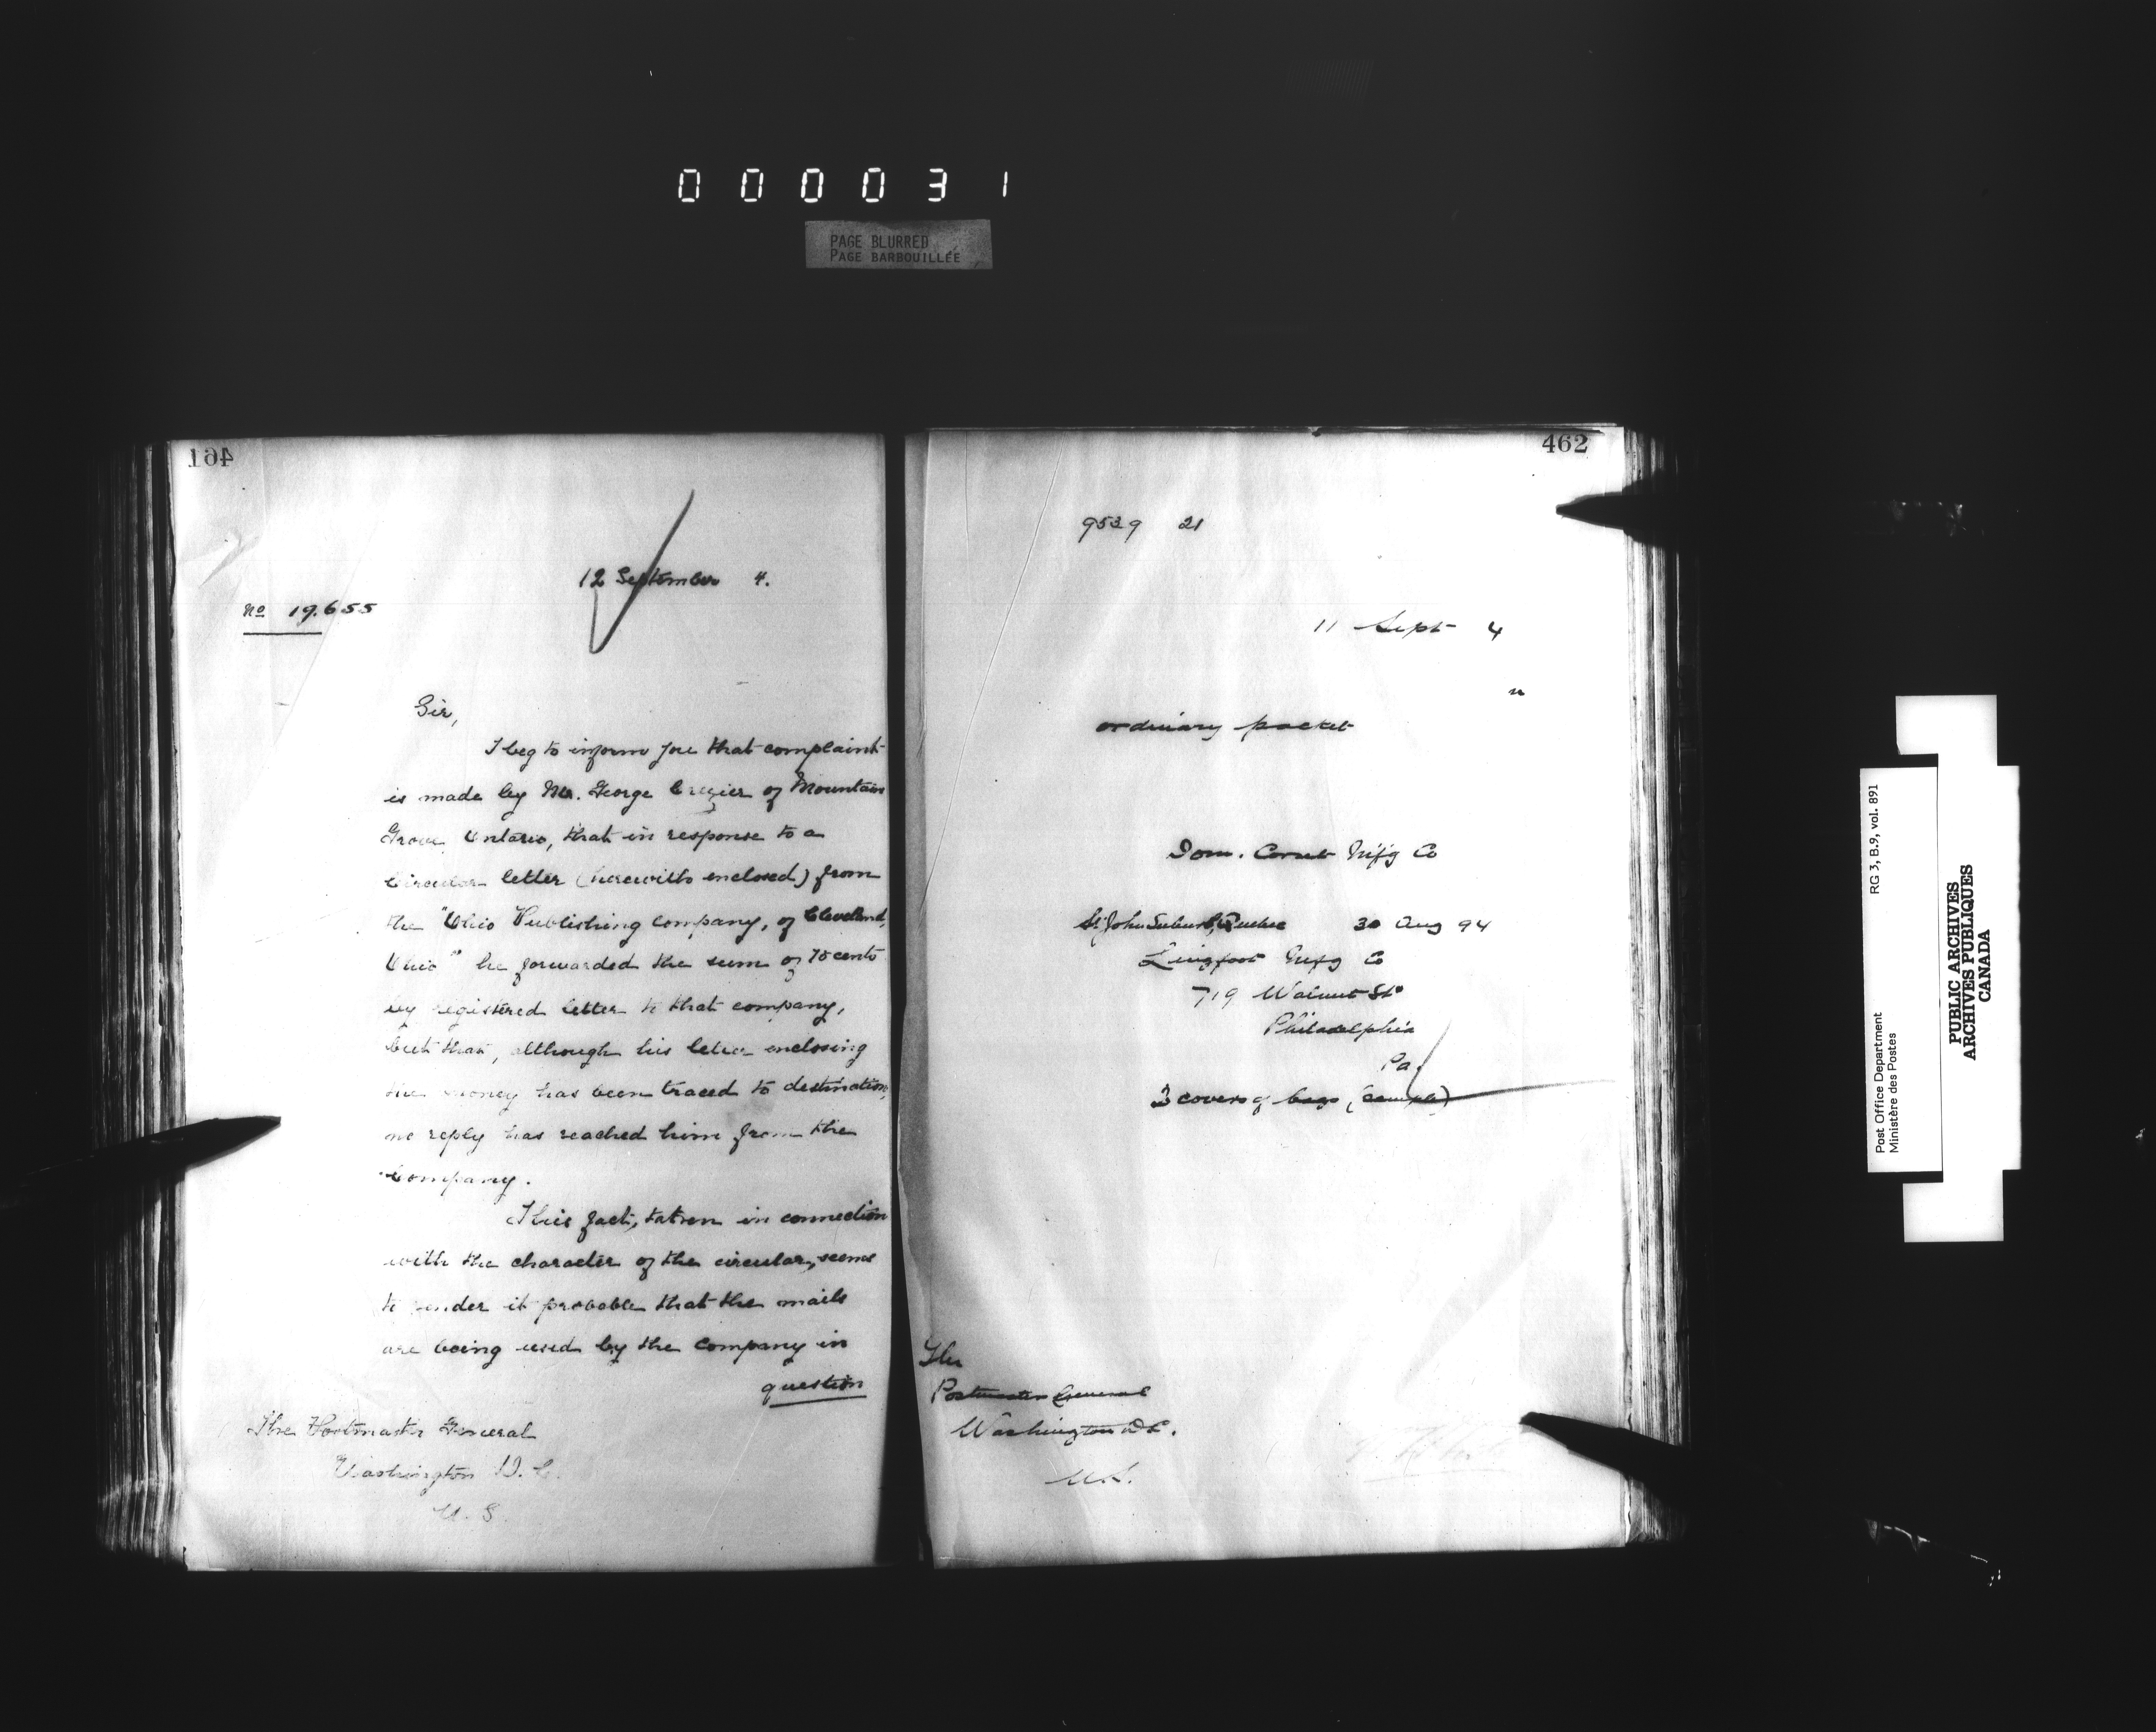 000031
PAGE BLURRED
PAGE BARBOUILLÉE
461
12 September 4.
No 19.655
Sir,
I beg to inform you that complaint
is made by Mr. George Crozier of Mountain
Grove, Ontario, that in response to a
Circular letter (herewith enclosed) from
the "Ohio Publishing Company, of Cleveland,
Ohio" he forwarded the sum of 75 cents
by registered letter to that company,
but that, although his letter enclosing
the money has been traced to destination,
no reply has reached him from the
Company.
This fact, taken in connection
with the character of the circular, seems
to render it probable that the mails
are being used by the Company in
question
The Postmaster General
Washington D. C.
U. S.
462
9539 21
11 Sept 4
n
ordinary packet
Dom. Corset Mfg Co
St John Suburb, Quebec 30 Aug 94
Lingfoot Mfg Co
719 Walnut St
Philadelphia
Pa.
3 covers of bags (sample)
The
Postmaster General
Washington D.C.
U.S.
Post Office Department
Ministère des Postes
RG 3, B.9, vol. 891
PUBLIC ARCHIVES
ARCHIVES PUBLIQUES
CANADA